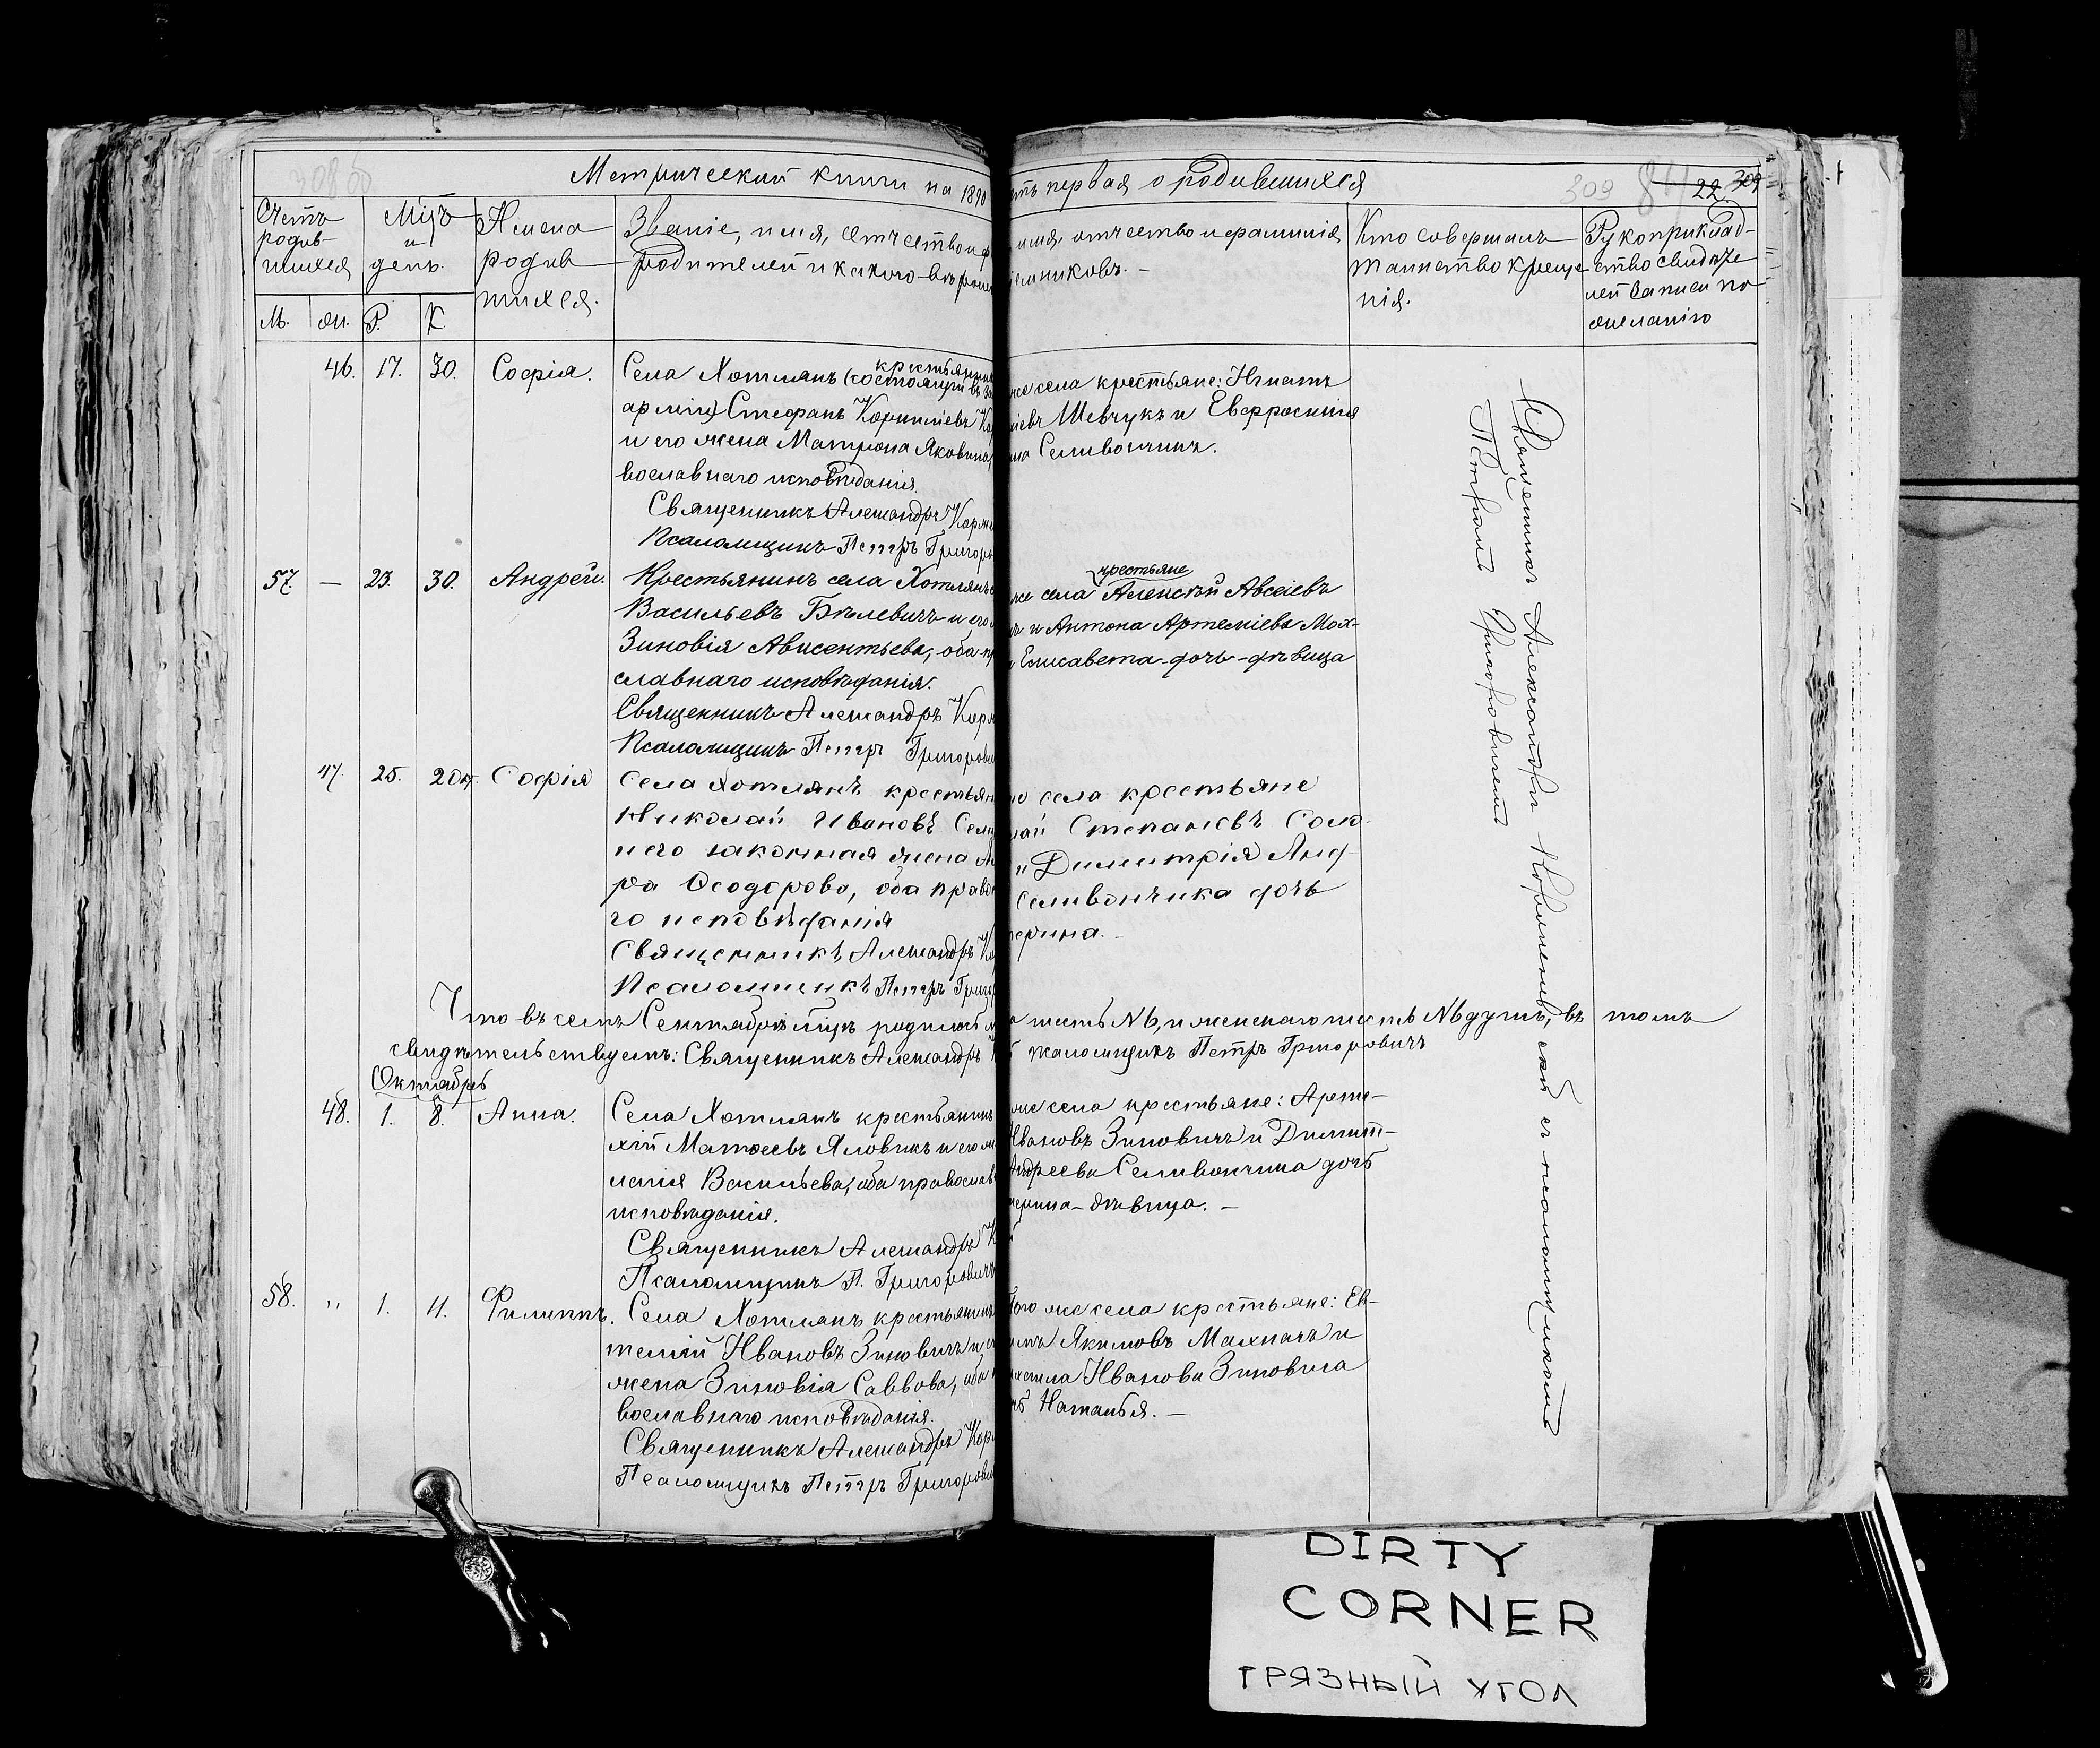 Метрической книги на 1890
сть первая о родившихся
309
22 309
Счетъ
родив-
шихся
Мцъ
и
день.
Имена
родив
шихся.
Званіе, имя, отчество и ф
родителей и какого вѣроис
имя, отчество и фамилія
емниковъ. —
Кто совершалъ
таинство креще
нія.
Рукоприклад-
ство свидѣте
лей записи по
желанію
М. Ж. Р. К.
46. 17. 30. Софія.
Села Хотлянъ (крестьянинъ
состоящій въ за
арміи) Стефанъ Корниліевъ
и его жена Матрона Яковлева,
вославнаго исповѣданія.
Священникъ Александръ Корж
Псаломщикъ Петръ Григоро
же села крестьяне: Игнатъ
іевъ Шевчукъ и Евфросинія
на Селивончикъ.
57. — 23. 30. Андрей.
Крестьянинъ села Хотлянъ
Васильевъ Бѣлевичъ и его
Зиновія Авксентьева, оба пр
славнаго исповѣданія.
Священникъ Александръ Кор
Псаломщикъ Петръ Григорови
крестьяне
же села Алексѣй Авсеіевъ
ъ и Антона Артеміева Мох-
Елисавета дочь-дѣвица
47. 25. Софія
Села Хотлянъ крестьян
Николай Ивановъ Сели
и его законная жена
ра Ѳеодорова, оба право
го исповѣданія
Священникъ Александръ Ко
Псаломщикъ Петръ Григор
о села крестьяне
лай Степановъ Соло-
и Димитрія Анд-
Селивончика дочь
ерина. —
Что въ семъ Сентябрѣ мцѣ родилось м
а шесть №6, и женскаго шесть №6 душъ, въ томъ
свидѣтельствуемъ: Священникъ Александръ К
псаломщикъ Петръ Григоровичъ
Октябрь
48. 1. 8. Анна.
Села Хотлянъ крестьянинъ
хій Матѳеевъ Яловикъ и его ж
ланія Васильева, оба православ
исповѣданія.
Священникъ Александръ К
Псаломщикъ П. Григоровичъ
же села крестьяне: Арте-
Ивановъ Зиновичъ и Димит-
Андреева Селивончика дочь
ерина-дѣвица. —
58. " 1. 11. Филиппъ.
Села Хотлянъ крестьянинъ
темій Ивановъ Зиновичъ и е
жена Зиновія Саввова, оба
вославнаго исповѣданія.
Священникъ Александръ Кор
Псаломщикъ Петръ Григорови
того же села крестьяне: Ев-
имъ Якимовъ Махначъ и
хаила Иванова Зиновича
ь Наталья. —
Священникъ Александръ
скій съ псаломщикомъ
Петромъ Григоровичемъ
DIRTY
CORNER
ГРЯЗНЫЙ УГОЛ